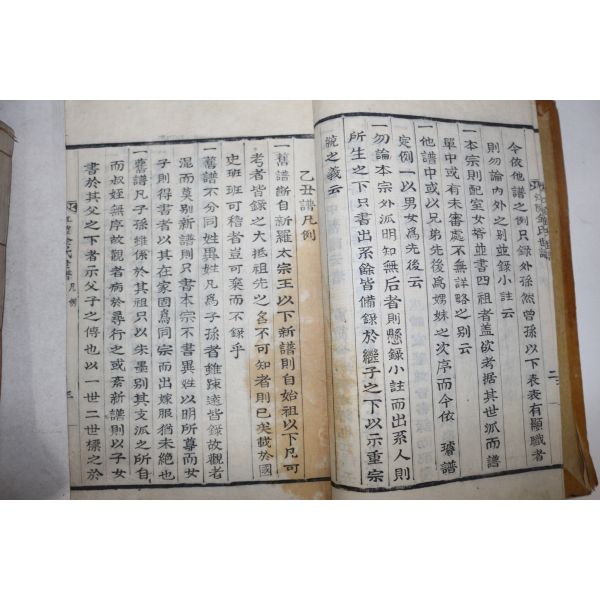 令依他譜之例只錄外孫然曾孫以下表表有顯職者
則勿論內外之別並錄小註云
一本宗則配室女婿並書四祖者盖欲考据其世派而譜
單中或有未審處不無詳略之別云
一他譜中或以兄弟先後爲嫂妹之次序而今依 璿譜
定例一以男女爲先後云
一勿論本宗外派明知無后者則懸錄小註而出系人則
所生之下只書出系餘皆備錄於繼子之下以示重宗
統之義云
乙丑譜凡例
一舊譜斷自新羅太宗王以下新譜則自始祖以下凡可
考者皆錄之大抵祖先之名不可知者則已矣載於國
史班班可稽者豈可棄而不錄乎
一舊譜不分同姓異姓凡爲子孫者雖踈遠皆錄故觀者
混而莫別新譜則只書本宗不書異姓以明所尊而女
子則得書者以其在家固爲同宗而出嫁服猶未絶也
一舊譜凡子孫維係於其祖只以朱墨別其支派之所自
而叔姪無序故觀者病於尋行之或紊新譜則以子女
書於其父之下者示父子之傳也以一世二世標之於
凡例